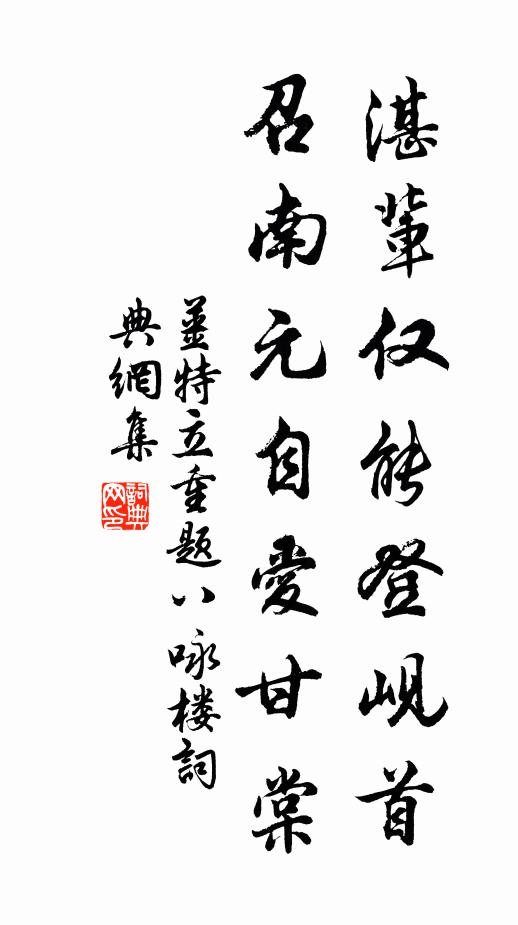 湛輩仅能登岘首
召南元自愛甘棠
姜特立重題八咏楼詞
典網集
詞典网印